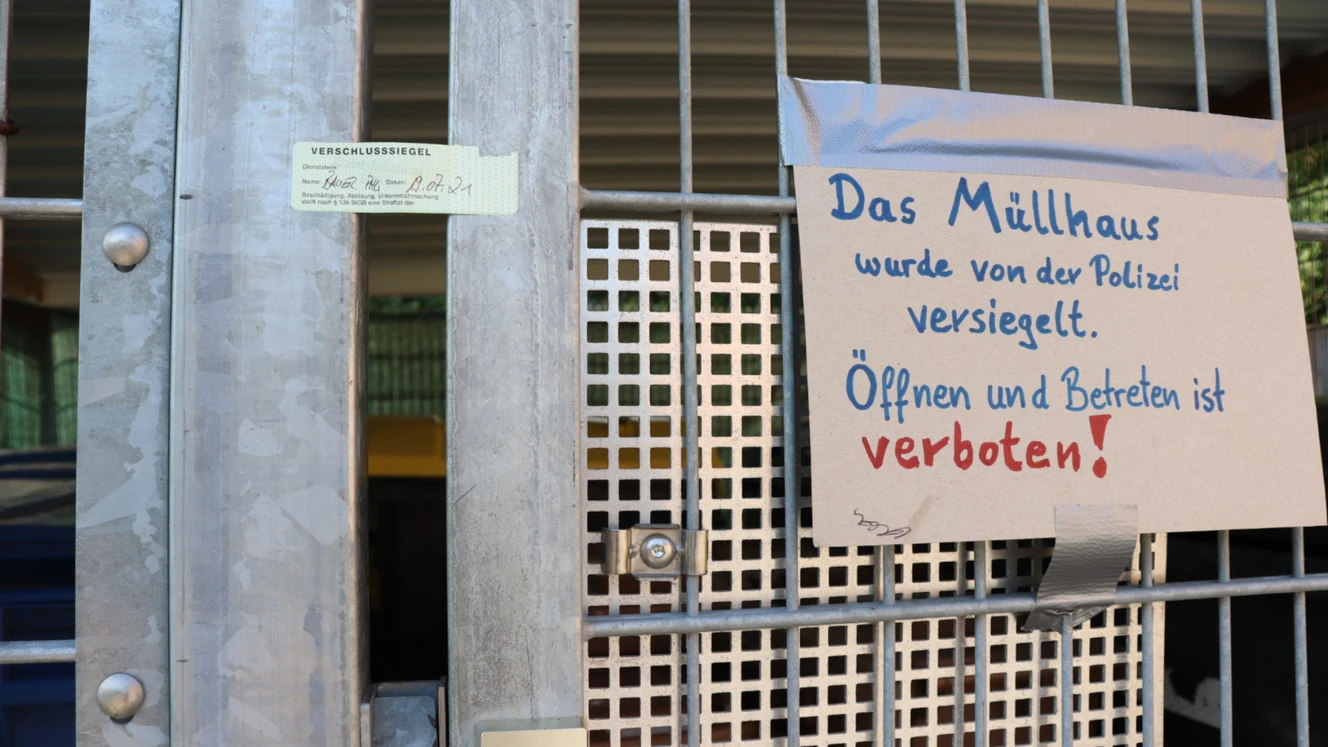 VERSCHLUSSSIEGEL
Dienststelle
Name: Datum: 19.07.21
Beschädigung, Ablösung, Unkenntlichmachung
stellt nach § 136 StGB eine Straftat dar.
Das Müllhaus
wurde von der Polizei
versiegelt.
Öffnen und Betreten ist
verboten!